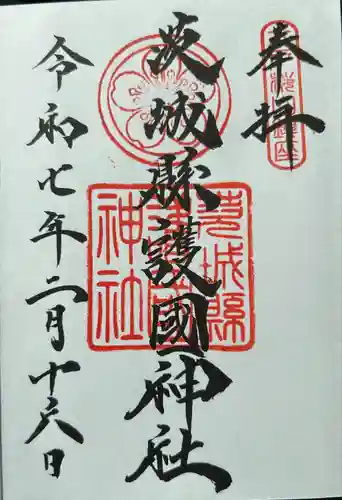 奉拝
茨城縣護國神社
茨城縣護國神社
令和七年二月十六日